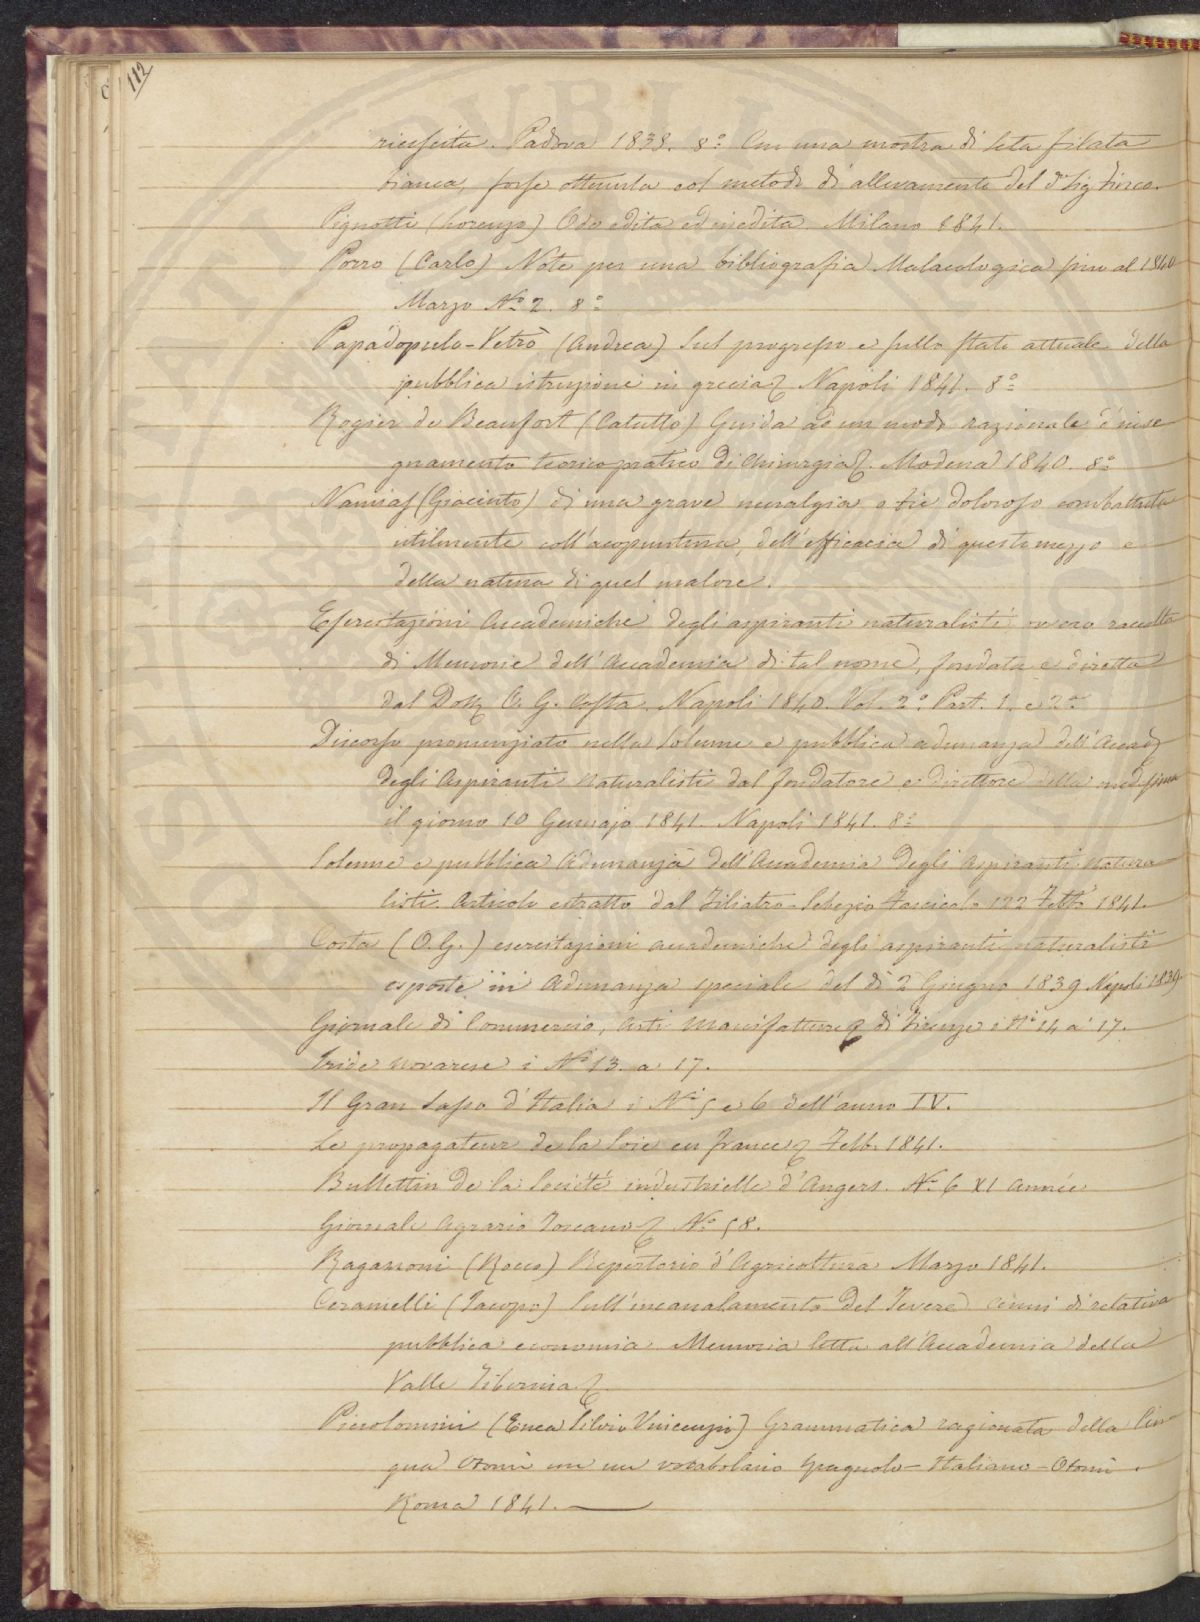 112
riuscita. Padova 1838. 8.° Con una mostra di seta filata
bianca, forse ottenuta col metodo di allevamento del d.° Sig.
Pignotti (Lorenzo) Ode edita ed inedita. Milano 1841.
Porro (Carlo) Note per una bibliografia Malacologica fino al 1840
Marzo N.° 2. 8.°
Papadopulo-Vetrò (Andrea) Sul progresso e sullo stato attuale della
pubblica istruzione in grecia Napoli 1841. 8.°
Rogier de Beaufort (Catullo) Guida ad un modo razionale d'inse
gnamento teorico pratico di chirurgia. Modena 1840. 8.°
Namias (Giacinto) di una grave neuralgia o tic doloroso combattuta
utilmente coll'acopuntura, dell'efficacia di questo mezzo e
della natura di quel malore.
Esercitazioni Accademiche degli aspiranti naturalisti ovvero raccolta
di Memorie dell'Accademia di tal nome, fondata e diretta
dal Dott. O. G. Costa. Napoli 1840. Vol. 2.° Part. 1. e 2.a
Discorso pronunziato nella solenne e pubblica adunanza dell'Accad
degli Aspiranti Naturalisti dal fondatore e direttore della medesima
il giorno 10 Gennajo 1841. Napoli 1841. 8.°
Solenne e pubblica Adunanza dell'Accademia degli Aspiranti Natura
listi. Articolo estratto dal Filiatre-Sebezio Fascicolo 122 Febb.° 1841.
Costa (O. G.) esercitazioni accademiche degli aspiranti naturalisti
esposte in Adunanza speciale del dì 2 Giugno 1839 Napoli 1839
Giornale di Commercio, Arti Manifatture di Firenze i N.i 14 a 17.
Iride novarese i N.i 13. a 17.
Il Gran Sasso d'Italia i N.i 5 e 6 dell'anno IV.
Le propagateur de la Soie en france Febb. 1841.
Bullettin de la Société industrielle d'Angers. N.° 6 XI Année
Giornale Agrario Toscano N.° 58.
Ragazzoni (Rocco) Repertorio d'Agricoltura Marzo 1841.
Ceramelli (Jacopo) Sull'incanalamento del Tevere cenni di relativa
pubblica economia. Memoria letta all'Accademia della
Valle Tiberina.
Piccolomini (Enea Silvio Vincenzo) Grammatica ragionata della lin
gua Otomì con un vocabolario Spagnolo-Italiano-Otomì.
Roma 1841.